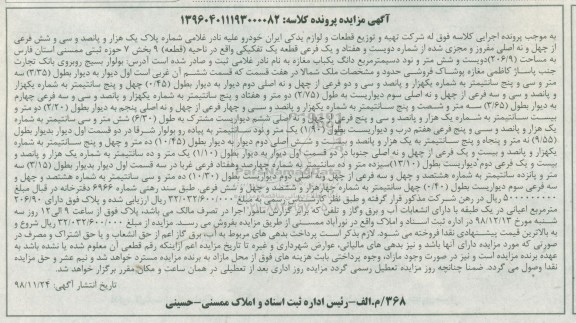 آگهی مزایده پرونده کلاسه: ۱۳۹۶۰۴۰۱۱۱۹۳۰۰۰۰۸۲
به موجب پرونده اجرایی کلاسه فوق له شرکت تهیه و توزیع قطعات و لوازم یدکی ایران خودرو علیه نادر غلامی شماره پلاک یک هزار و پانصد و سی و شش فرعی
از چهل و نه اصلی مفروز و مجزی شده از شماره دویست و هفتاد و یک فرعی قطعه یک تفکیکی واقع در ناحیه (قطعه) ۹ بخش ۷ حوزه ثبتی ممسنی استان فارس
به مساحت (۲۰۶/۹) دویست و شش متر و نود دسیمترمربع دانگ یکباب مغازه به نام نادر غلامی ثبت و صادر شده است آدرس: بولوار بسیج روبروی بانک تجارت
جنب پاساژ کاظمی مغازه پوشاک فروشی حدود و مشخصات ملک شمالا در هفت قسمت که قسمت ششم آن غربی است اول دیوار به دیوار بطول (۳/۳۵) سه
متر و سی و پنج سانتیمتر به شماره یکهزار و پانصد و سی و دو فرعی از چهل و نه اصلی دوم دیوار به دیوار بطول (۰/۴۵) چهل و پنج سانتیمتر به شماره یکهزار
و پانصد و سی و سه فرعی از چهل و نه اصلی سوم دیواریست به طول (۲/۷۵) دو متر و هفتاد و پنج سانتیمتر به شماره یکهزار و پانصد و سی و سه فرعی چهارم
به دیوار بطول (۳/۶۵) سه متر و شصت و پنج سانتیمتر به شماره یکهزار و پانصد و سی و چهار فرعی از چهل و نه اصلی پنجم به دیوار بطول (۲/۲۰) دو متر و
بیست سانتیمتر به شماره یک هزار و پانصد و سی و پنج فرعی از چهل و نه اصلی ششم دیواریست مشترک به طول (۶/۳۰) شش متر و سی سانتیمتر به شماره
یک هزار و پانصد و سی و پنج فرعی هفتم درب و دیواریست بطول (۱/۹۰) یک متر و نود سانتیمتر به پیاده رو بولوار شرقا در دو قسمت اول دیوار بدیوار بطول
(۹/۵۵) نه متر و پنجاه و پنج سانتیمتر به یک هزار و پانصد و بیست و شش اصلی دوم دیوار به دیوار بطول (۱۰/۴۵) ده متر و چهل و پنج سانتیمتر به شماره
یکهزار و پانصد و بیست و یک فرعی از چهل و نه اصلی جنوبا در دو قسمت اول دیوار به دیوار بطول (۱/۱۰) یک متر و ده سانتیمتر به شماره یک هزار و پانصد و
بیست و یک فرعی دوم دیواریست بطول (۱۳/۱۰) سیزده متر و ده سانتیمتر به شماره چهارصد وهفتاد فرعی غربا در سه قسمت اول دیوار بدیوار بطول (۳/۱۵) سه
متر و پانزده سانتیمتر به شماره هشتصد و چهل و سه فرعی از چهل و نه اصلی دوم دیوار به دیوار بطول (۱۰/۳۰) ده متر و سی سانتیمتر به شماره هشتصد و چهل و
سه فرعی سوم دیواریست بطول (۰/۴۰) چهل سانتیمتر به شماره چهارهزار و ششصد و چهل و شش فرعی. طبق سند رهنی شماره ۶۹۶۶ دفترخانه در قبال مبلغ
۵۰۰۰۰۰۰۰۰۰ ریال در رهن شرکت مذکور قرار گرفته و طبق نظر کارشناس رسمی به مبلغ ۳۲/۰۳۲/۶۰۰/۰۰۰ ریال ارزیابی شده و پلاک فوق دارای ۲۰۶/۹۰
مترمربع اعیانی در یک طبقه با دارای انشعابات آب و برق وگاز و تلفن که برابر گزارش مامور اجرا در تصرف مالک می باشد، پلاک فوق از ساعت ۹ الی ۱۲ روز سه
شنبه مورخ ۹۸/۱۲/۱۳ در اداره ثبت اسناد و املاک واقع در نورآباد ممسنی از طریق مزایده بفروش می رسد. مزایده از مبلغ ۳۲/۰۳۲/۶۰۰/۰۰۰ ریال شروع و
به بالاترین قیمت پیشنهادی نقدا فروخته می شود. لازم بذکر است پرداخت بدهی های مربوط به آب، برق گاز اعم از حق انشعاب و یا حق اشتراک و مصرف در
صورتی که مورد مزایده دارای آنها باشد و نیز بدهی های مالیاتی، عوارض شهرداری و غیره تا تاریخ مزایده اعم از اینکه رقم قطعی آن معلوم شده یا نشده باشد به
عهده برنده مزایده است و نیز در صورت وجود مازاد، وجوه پرداختی بابت هزینه های فوق از محل مازاد به برنده مزایده مسترد خواهد شد و نیم عشر و حق مزایده
نقدا وصول می گردد. ضمنا چنانچه روز مزایده تعطیل رسمی گردد مزایده روز اداری بعد از تعطیلی در همان ساعت و مکان مقرر برگزار خواهد شد.
تاریخ انتشار آگهی: ۹۸/۱۱/۲۴
۳۶۸/م.الف-رئیس اداره ثبت اسناد و املاک ممسنی-حسینی